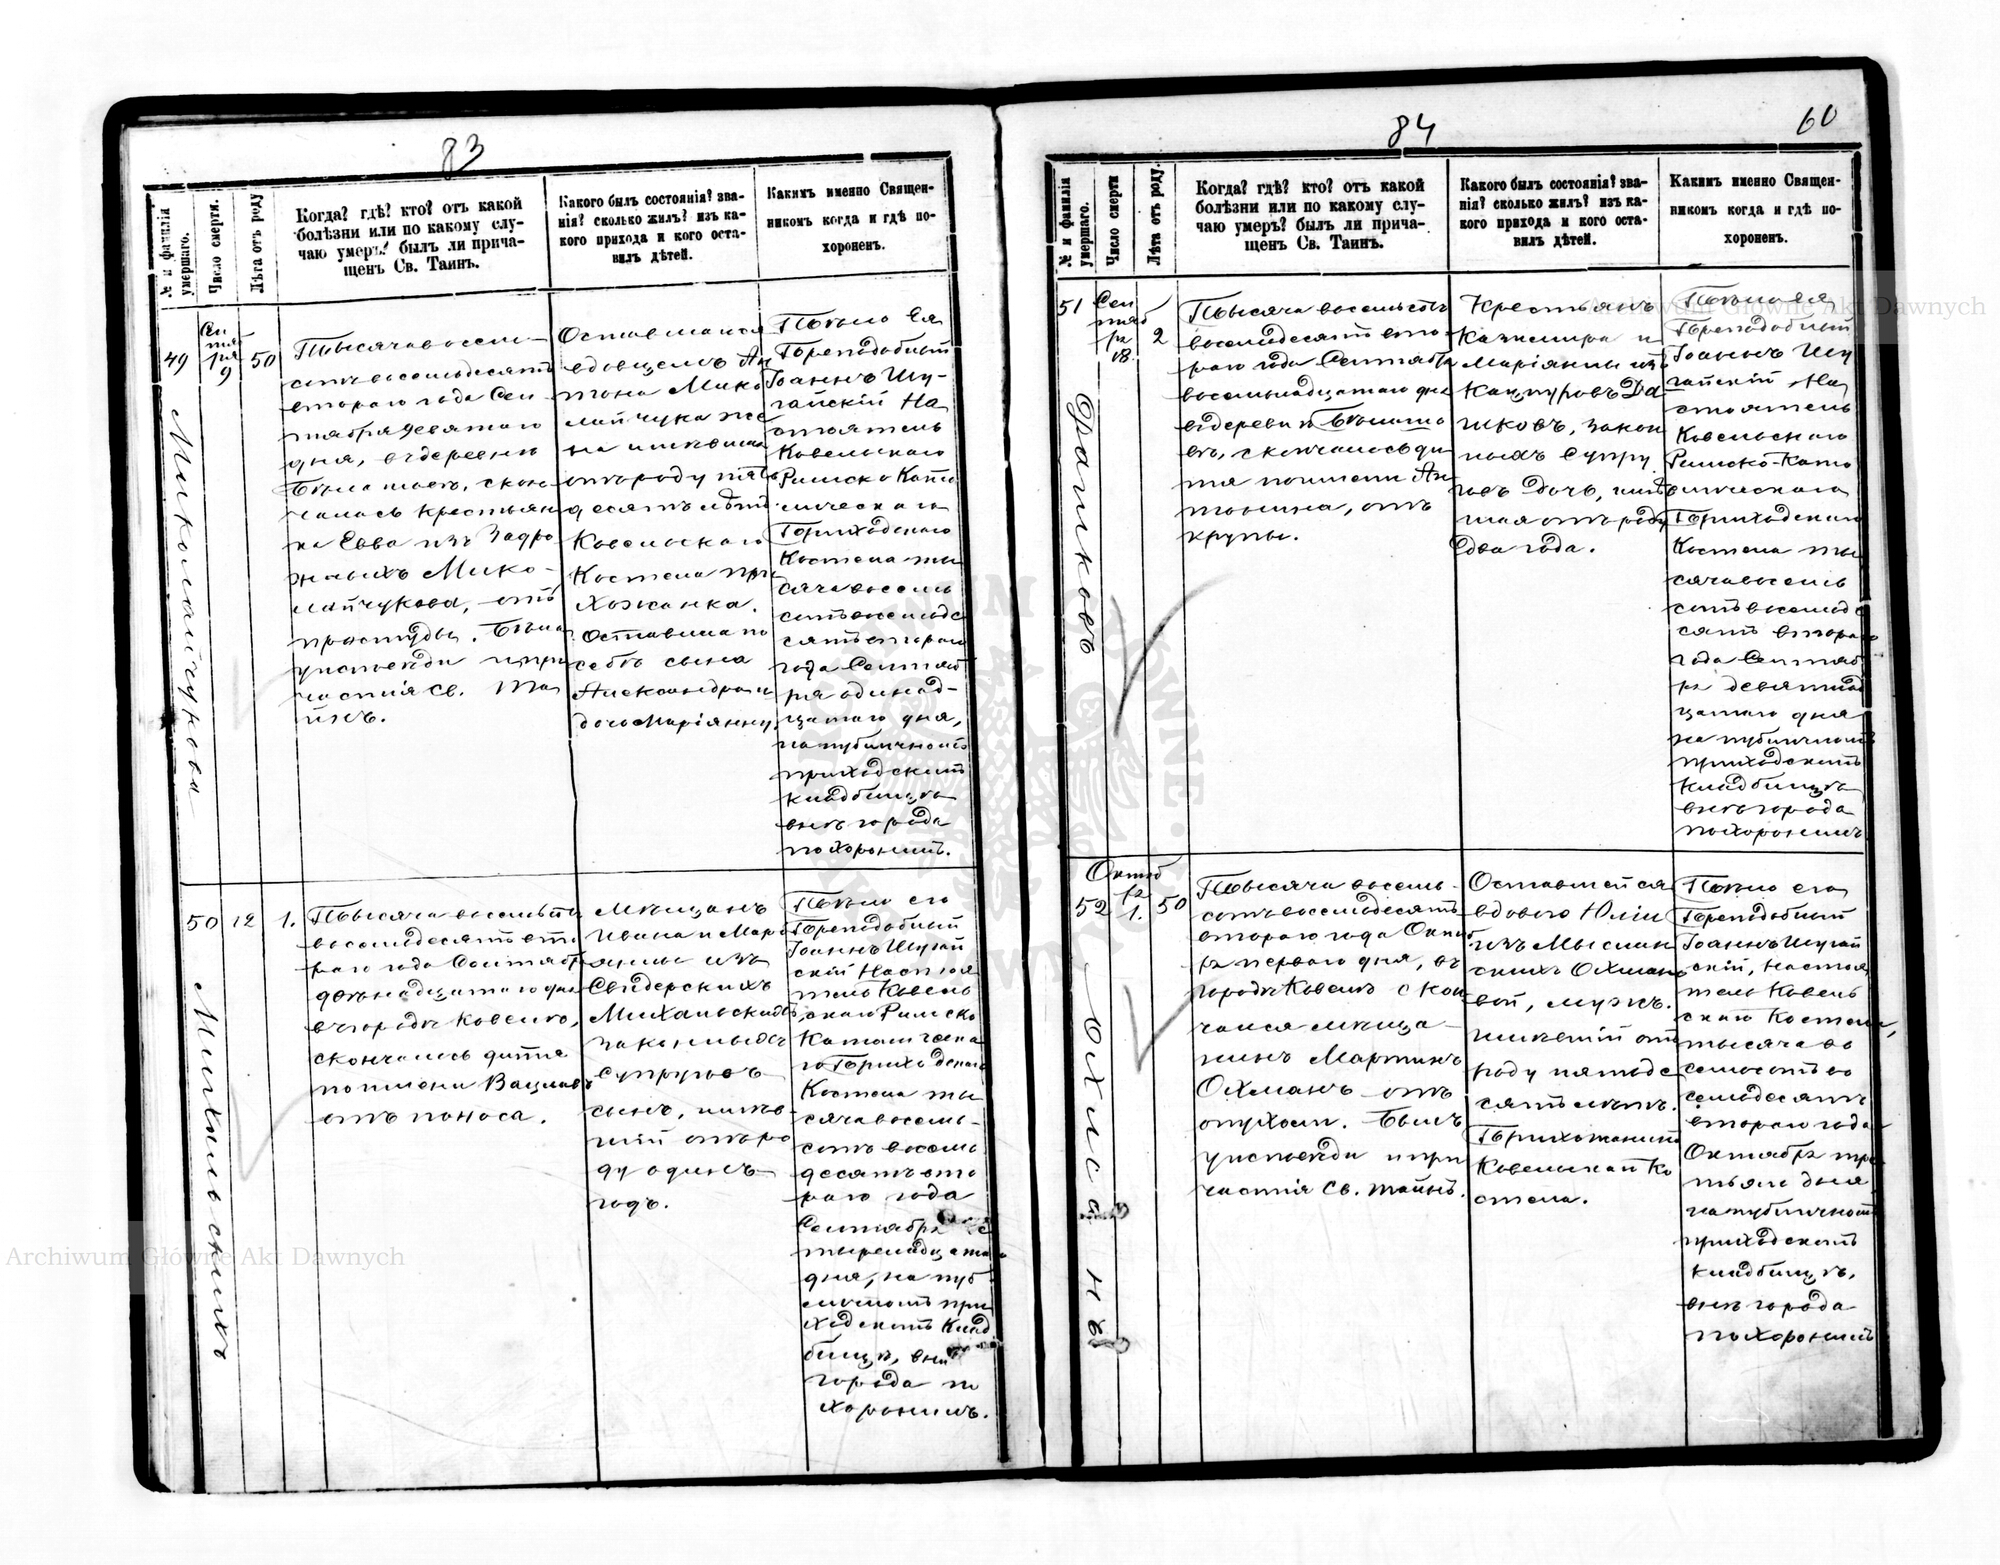 83
№ и фамилія умершаго.
Число смерти.
Лѣта отъ роду
Когда? гдѣ? кто? отъ какой
болѣзни или по какому слу-
чаю умеръ? былъ ли прича-
щенъ Св. Таинъ.
Какого былъ состоянія? зва-
нія? сколько жилъ? изъ ка-
кого прихода и кого оста-
вилъ дѣтей.
Какимъ именно Священ-
никомъ когда и гдѣ по-
хороненъ.
49
Миколайчукова
Сен
тяб
ря
9
50
Тысяча восем-
сотъ восемьдесятъ
втораго года Сен
тября девятаго
дня, въ деревни
скон
чалась крестьян
ка Евва изъ Задро
жныхъ Мико-
лайчукова, отъ
простуды. Была
у исповѣди и при
частія Св. Та
инъ.
Оставшаяся
вдовцемъ Ан
тона Мико
лайчука же
на имѣвшая
отъ роду пять
десятъ лѣтъ
Ковельскаго
Костела при
хожанка.
Оставила по
себѣ сына
Александра и
дочь Маріянну
Тѣло Ея
Преподобный
Іоаннъ Шу-
гайскій На
стоятель
Ковельскаго
Римско Като
лическаго
Приходскаго
Костела ты
сяча восемь
сотъ восемьде
сятъ втораго
года Сентяб
ря одинад-
цатаго дня,
на публичномъ
приходскомъ
кладбищѣ
внѣ города
похоронилъ.
50
Михальскихъ
12
1.
Тысяча восемьсотъ
восемьдесятъ вто
раго года Сентября
двѣнадцатаго дня
въ городѣ Ковелѣ,
скончалось дитя
по имени Вацлавъ
отъ поноса.
Мѣщанъ
Ивана и Марі
янны изъ
Свидерскихъ
Михальскихъ
законныхъ
супруговъ
сынъ, имѣв-
шій отъ ро
ду одинъ
годъ.
Тѣло его
Преподобный
Іоаннъ Шугай
скій Настоя
тель Ковель
скаго Римско
Католическа
го Приходскаго
Костела ты
сяча восемь-
сотъ восемь
десятъ вто
раго года
Сентября че
тырнадцатаго
дня, на пуб
личномъ при
ходскомъ клад
бищѣ, внѣ
города по
хоронилъ.
84
60
№ и фамилія умершаго.
Число смерти
Лѣта отъ роду.
Когда? гдѣ? кто? отъ какой
болѣзни или по какому слу-
чаю умеръ? былъ ли прича-
щенъ Св. Таинъ.
Какого былъ состоянія? зва-
нія? сколько жилъ? изъ ка-
кого прихода и кого оста-
вилъ дѣтей.
Какимъ именно Священ-
никомъ когда и гдѣ по-
хороненъ.
51
Сен
тяб
ря
18.
2
Тысяча восемьсотъ
восемьдесятъ вто-
раго года Сентября
восемьнадцатаго дня
въ деревни
скончалось ди
тя по имени Ан
тонина, отъ
крупы.
Крестьянъ
Казимира и
Маріянны изъ
закон
ныхъ супру
говъ дочь, имѣв
шая отъ роду
два года.
Тѣло ея
Преподобный
Іоаннъ Шу
гайскій На
стоятель
Ковельскаго
Римско-Като
лическаго
Приходскаго
Костела ты
сяча восемь
сотъ восемьде
сятъ втораго
года Сентяб
ря девятнад
цатаго дня
на публичномъ
приходскомъ
кладбищѣ
внѣ города
похоронилъ
52
Охманъ
Октяб
ря
1.
50
Тысяча восемь-
сотъ восемьдесятъ
втораго года Октяб
ря перваго дня, въ
городѣ Ковелѣ скон
чался мѣща-
нинъ Мартинъ
Охманъ отъ
опухоли. Былъ
у исповѣди и при
частія Св. Таинъ.
Оставшейся
вдовою Юліи
изъ Мыслин
скихъ Охмано
вой, мужъ.
имѣвшій отъ
роду пятьде
сятъ лѣтъ.
Прихожанинъ
Ковельскаго Ко
стела.
Тѣло его
Преподобный
Іоаннъ Шугай
скій, Настоя
тель Ковель
скаго Костела,
тысяча во
семьсотъ во
семьдесятъ
втораго года
Октября тре
тьяго дня
на публичномъ
приходскомъ
кладбищѣ,
внѣ города
похоронилъ
Archiwum Główne Akt Dawnych
Archiwum Główne Akt Dawnych